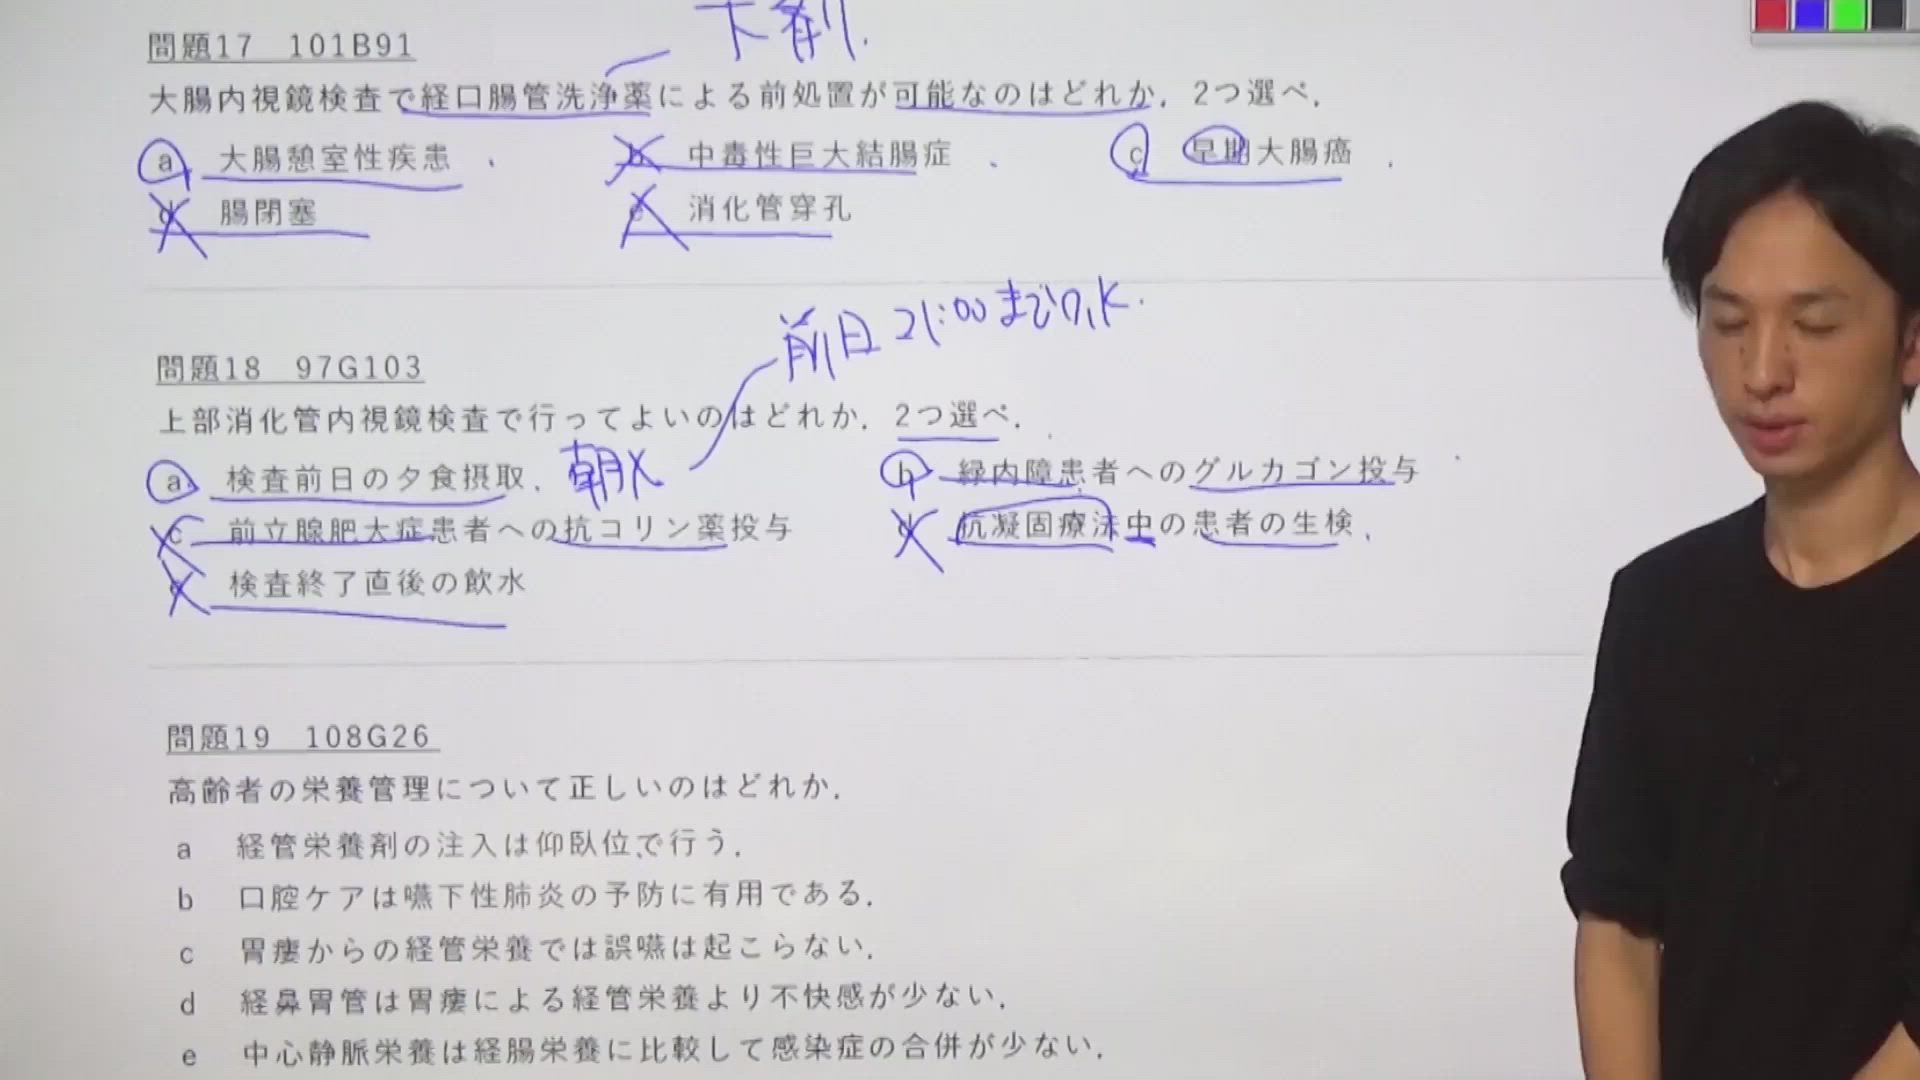 下剤.
問題17 101B91
大腸内視鏡検査で経口腸管洗浄薬による前処置が可能なのはどれか. 2つ選べ.
a 大腸憩室性疾患 b 中毒性巨大結腸症 c 早期大腸癌
d 腸閉塞 e 消化管穿孔
前日 21:00までOK.
問題18 97G103
上部消化管内視鏡検査で行ってよいのはどれか. 2つ選べ.
a 検査前日の夕食摂取. 朝× b 緑内障患者へのグルカゴン投与
c 前立腺肥大症患者への抗コリン薬投与 d 抗凝固療法中の患者の生検.
e 検査終了直後の飲水
問題19 108G26
高齢者の栄養管理について正しいのはどれか.
a 経管栄養剤の注入は仰臥位で行う.
b 口腔ケアは嚥下性肺炎の予防に有用である.
c 胃瘻からの経管栄養では誤嚥は起こらない.
d 経鼻胃管は胃瘻による経管栄養より不快感が少ない.
e 中心静脈栄養は経腸栄養に比較して感染症の合併が少ない.